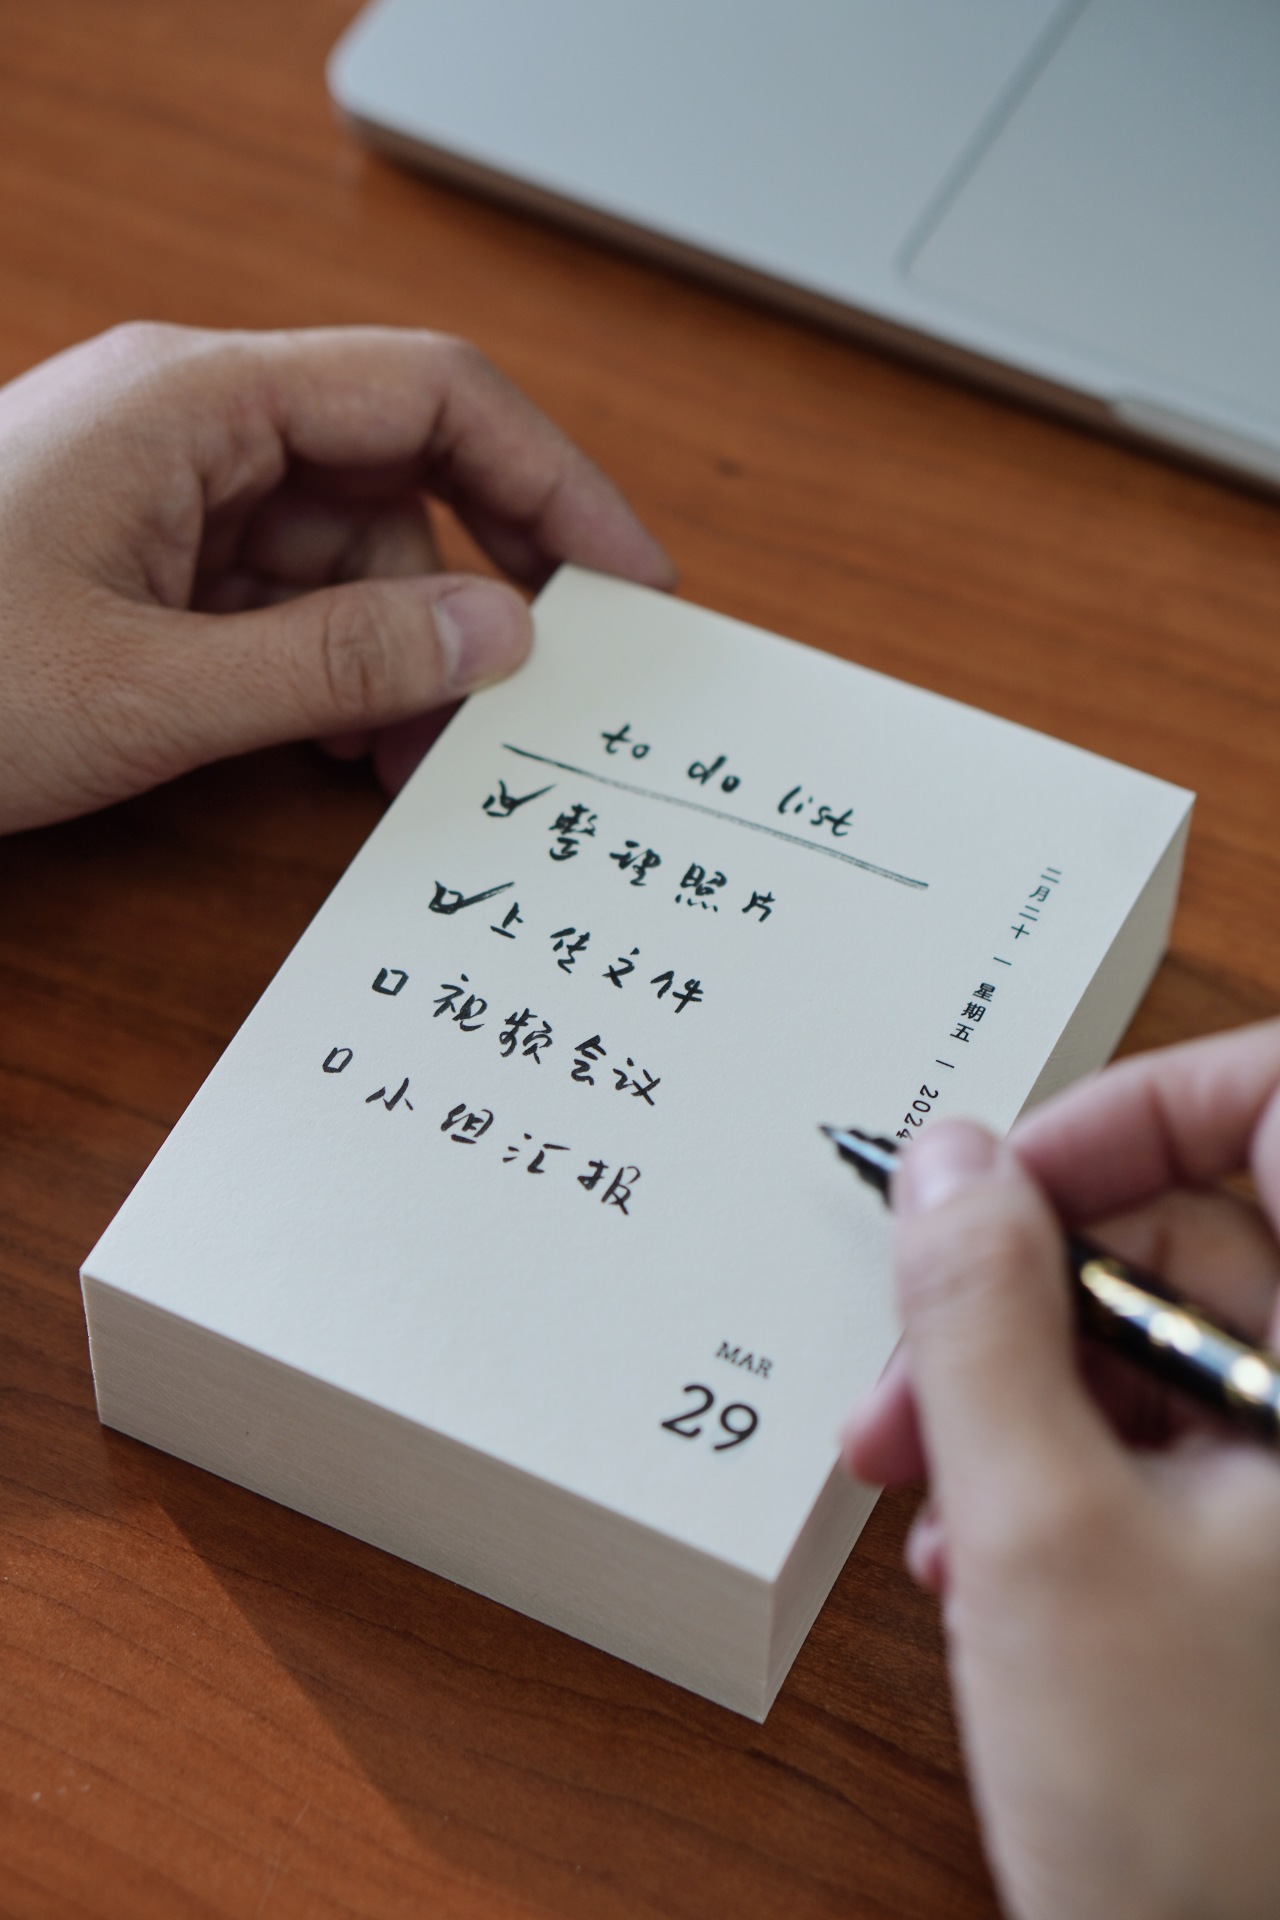 to do list
整理照片
上传文件
视频会议
小组汇报
二月二十 — 星期五 — 2024
MAR
29